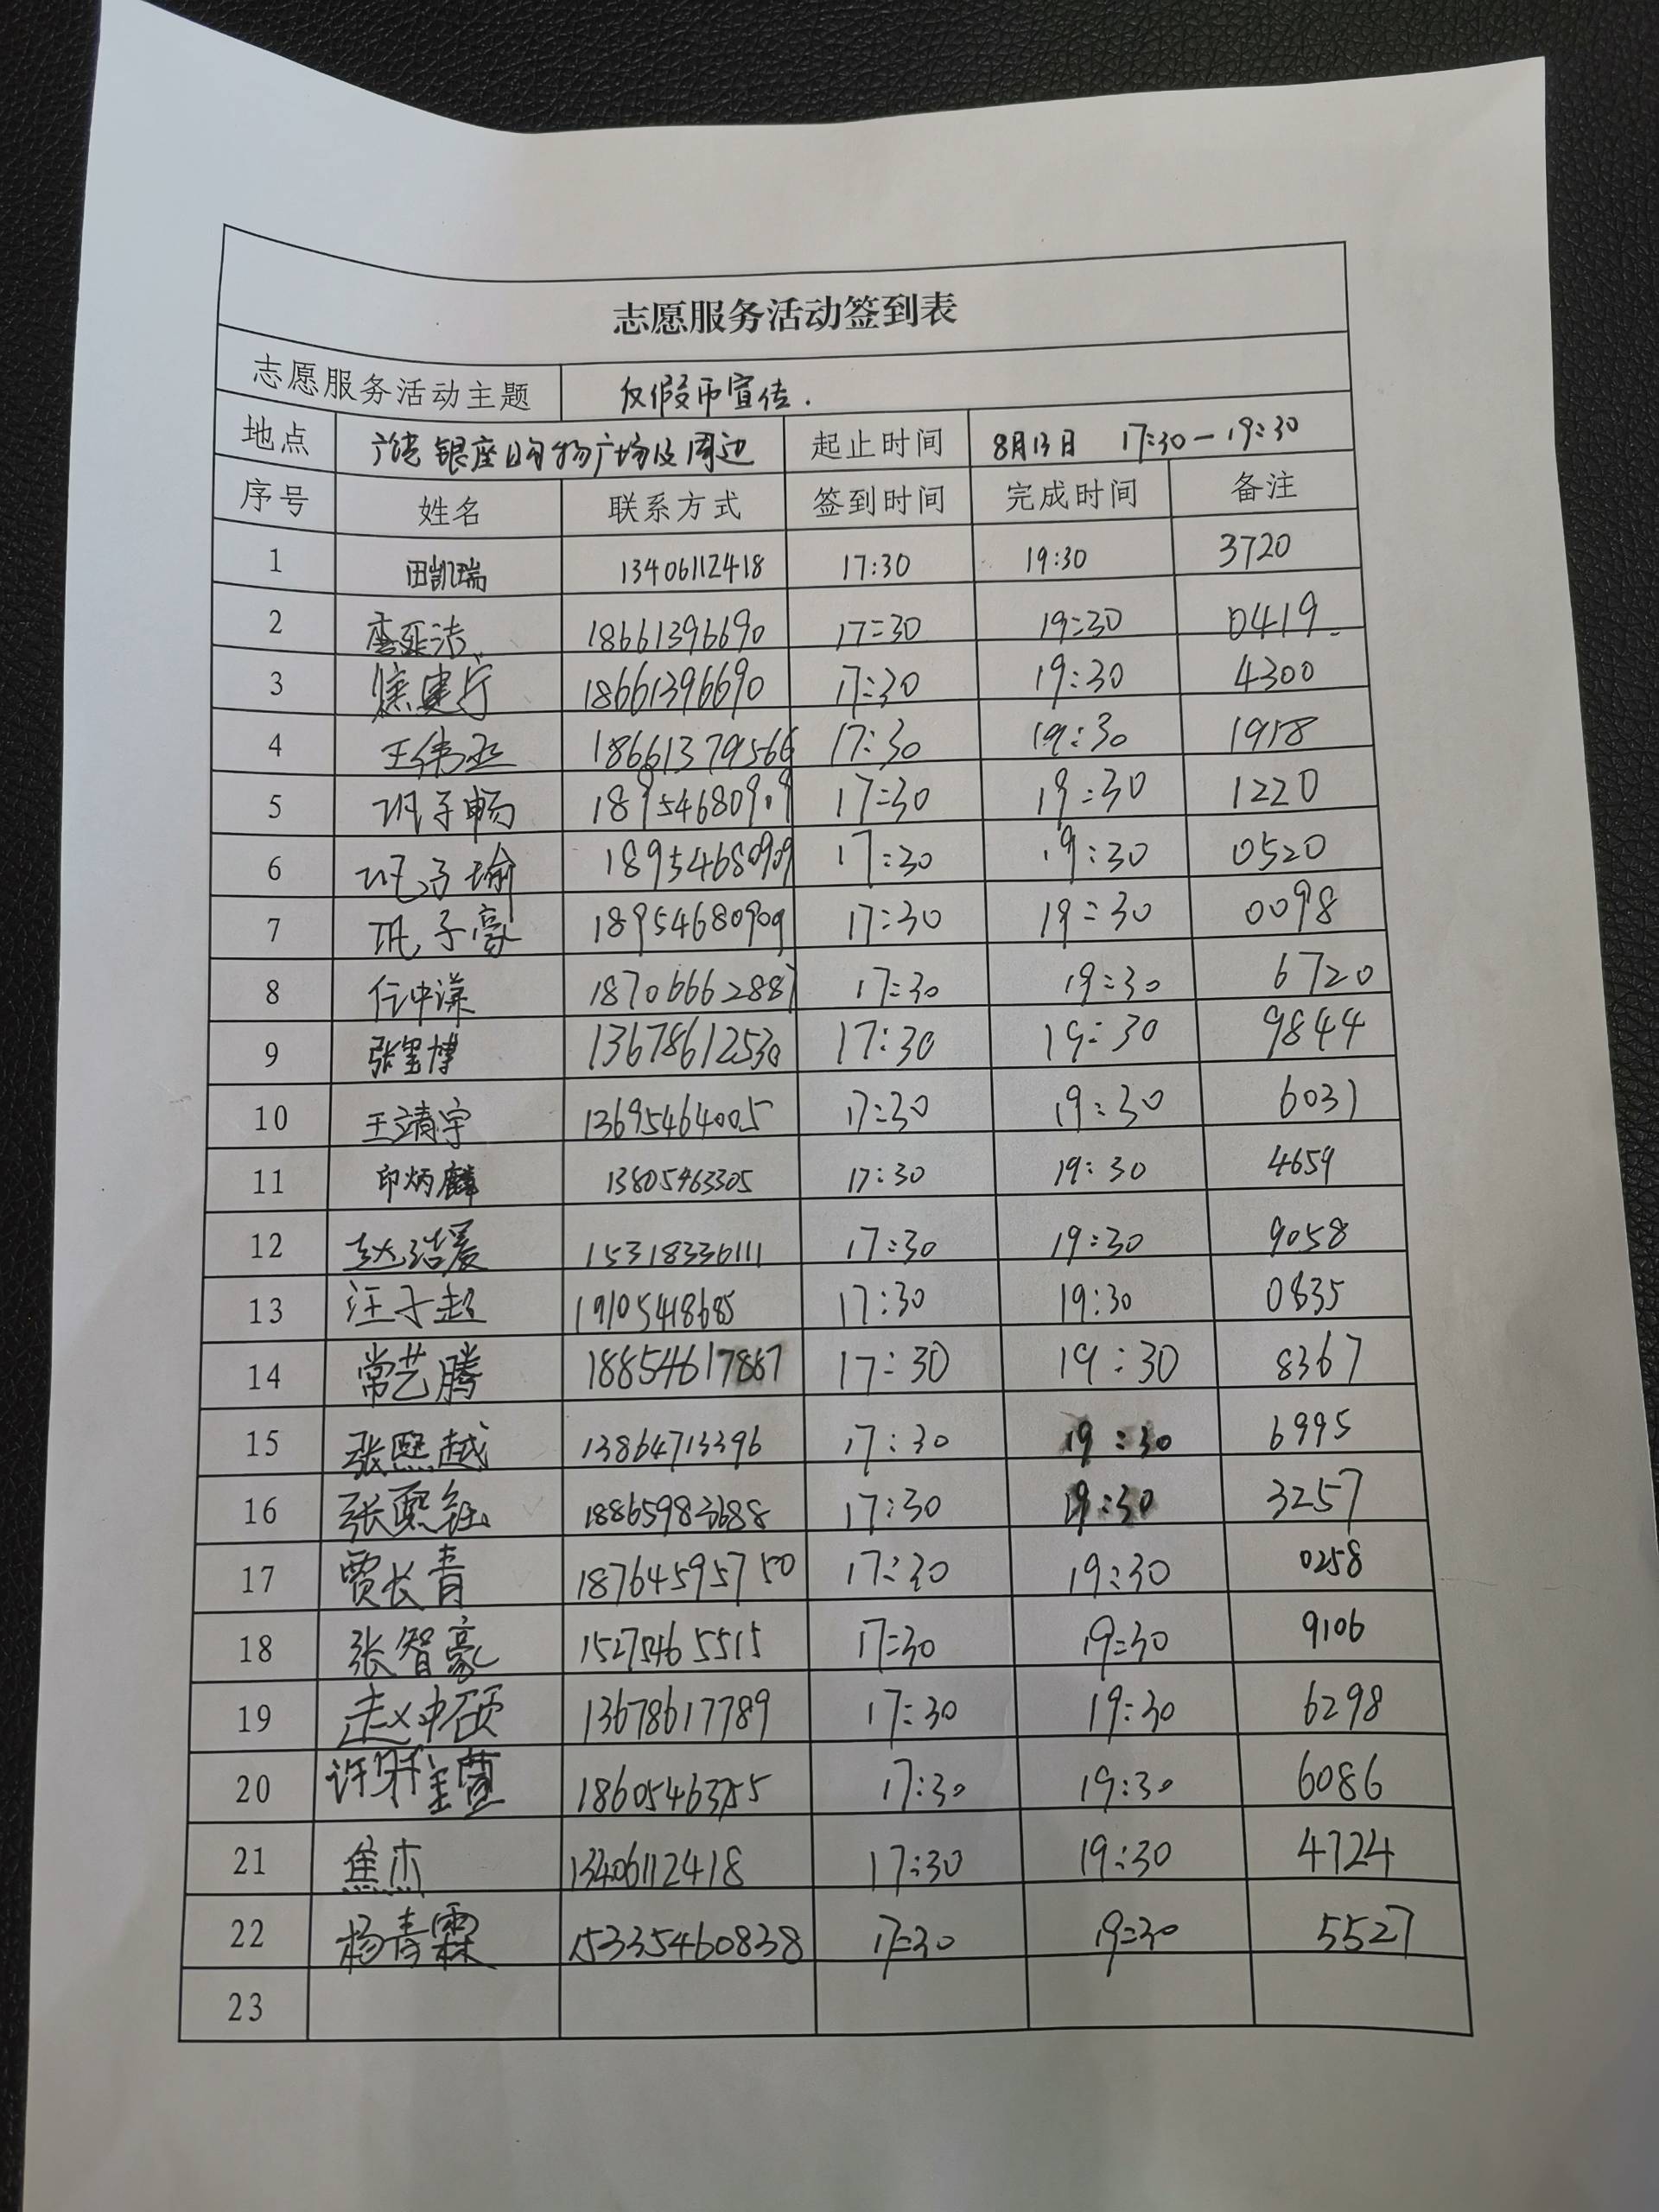 志愿服务活动签到表
志愿服务活动主题 反假币宣传.
地点 广饶银座购物广场及周边 起止时间 8月13日 17:30-19:30
序号 姓名 联系方式 签到时间 完成时间 备注
1 田凯瑞 13406112418 17:30 19:30 3720
2 李延洁 18661396690 17:30 19:30 0419
3 18661396690 17:30 19:30 4300
4 王伟丞 18661379566 17:30 19:30 1918
5 巩子畅 18954680909 17:30 19:30 1220
6 巩子瑜 18954680909 17:30 19:30 0520
7 巩子豪 18954680909 17:30 19:30 0098
8 任中谦 18706662887 17:30 19:30 6720
9 张玺博 13678612530 17:30 19:30 9844
10 王靖宇 13695464005 17:30 19:30 6031
11 印炳麟 13805463305 17:30 19:30 4659
12 赵浩爰 15318336111 17:30 19:30 9058
13 汪子起 19105418685 17:30 19:30 0835
14 常艺腾 18854617867 17:30 19:30 8367
15 张熙越 13864713396 17:30 19:30 6995
16 张熙钰 18865983688 17:30 19:30 3257
17 贾长青 18764595750 17:30 19:30 0258
18 张智豪 15275465515 17:30 19:30 9106
19 赵冲硕 13678617789 17:30 19:30 6298
20 17:30 19:30 6086
21 焦杰 13406112418 17:30 19:30 4724
22 杨青霖 15335460838 17:30 19:30 5527
23